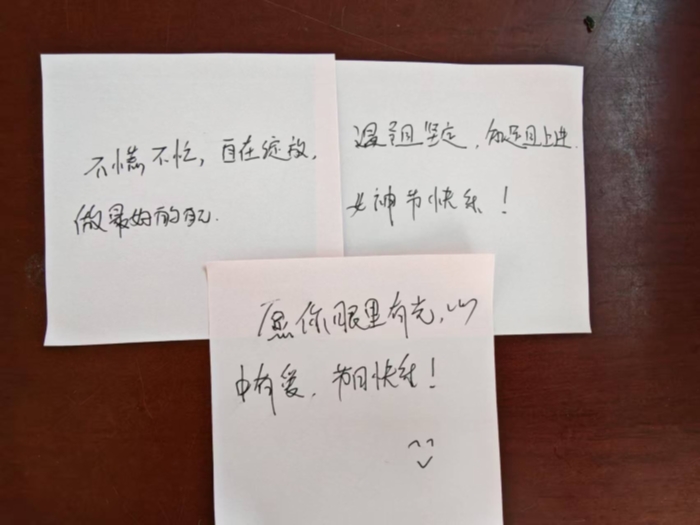 不慌不忙，自在绽放，
做最好的自己.
温柔且坚定，知足且上进.
女神节快乐！
愿你眼里有光，心
中有爱，节日快乐！